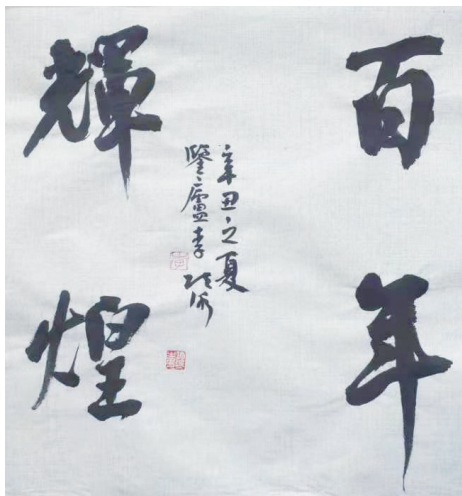 百年
輝煌
辛丑之夏
鑒廬李